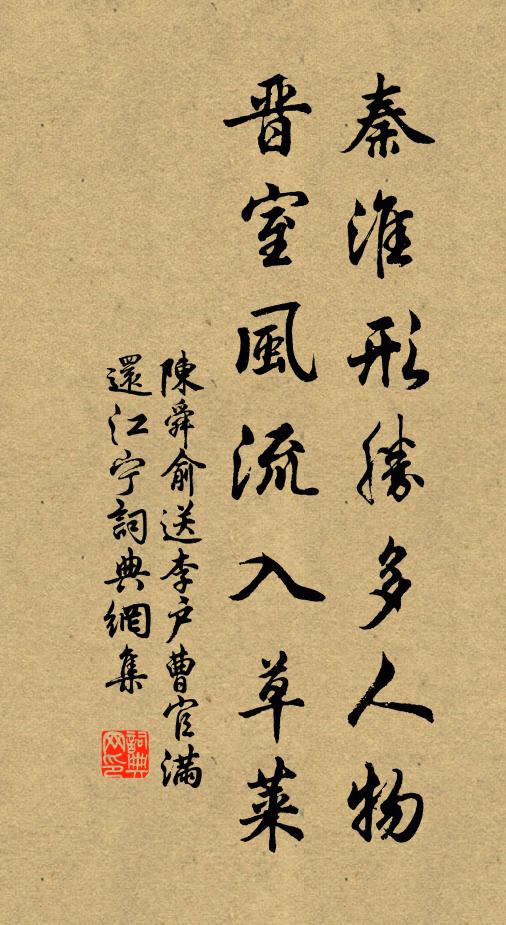 秦淮形勝多人物
晋室風流入草萊
陳舜俞送李户曹官滿
還江宁詞典網集
詞典網印